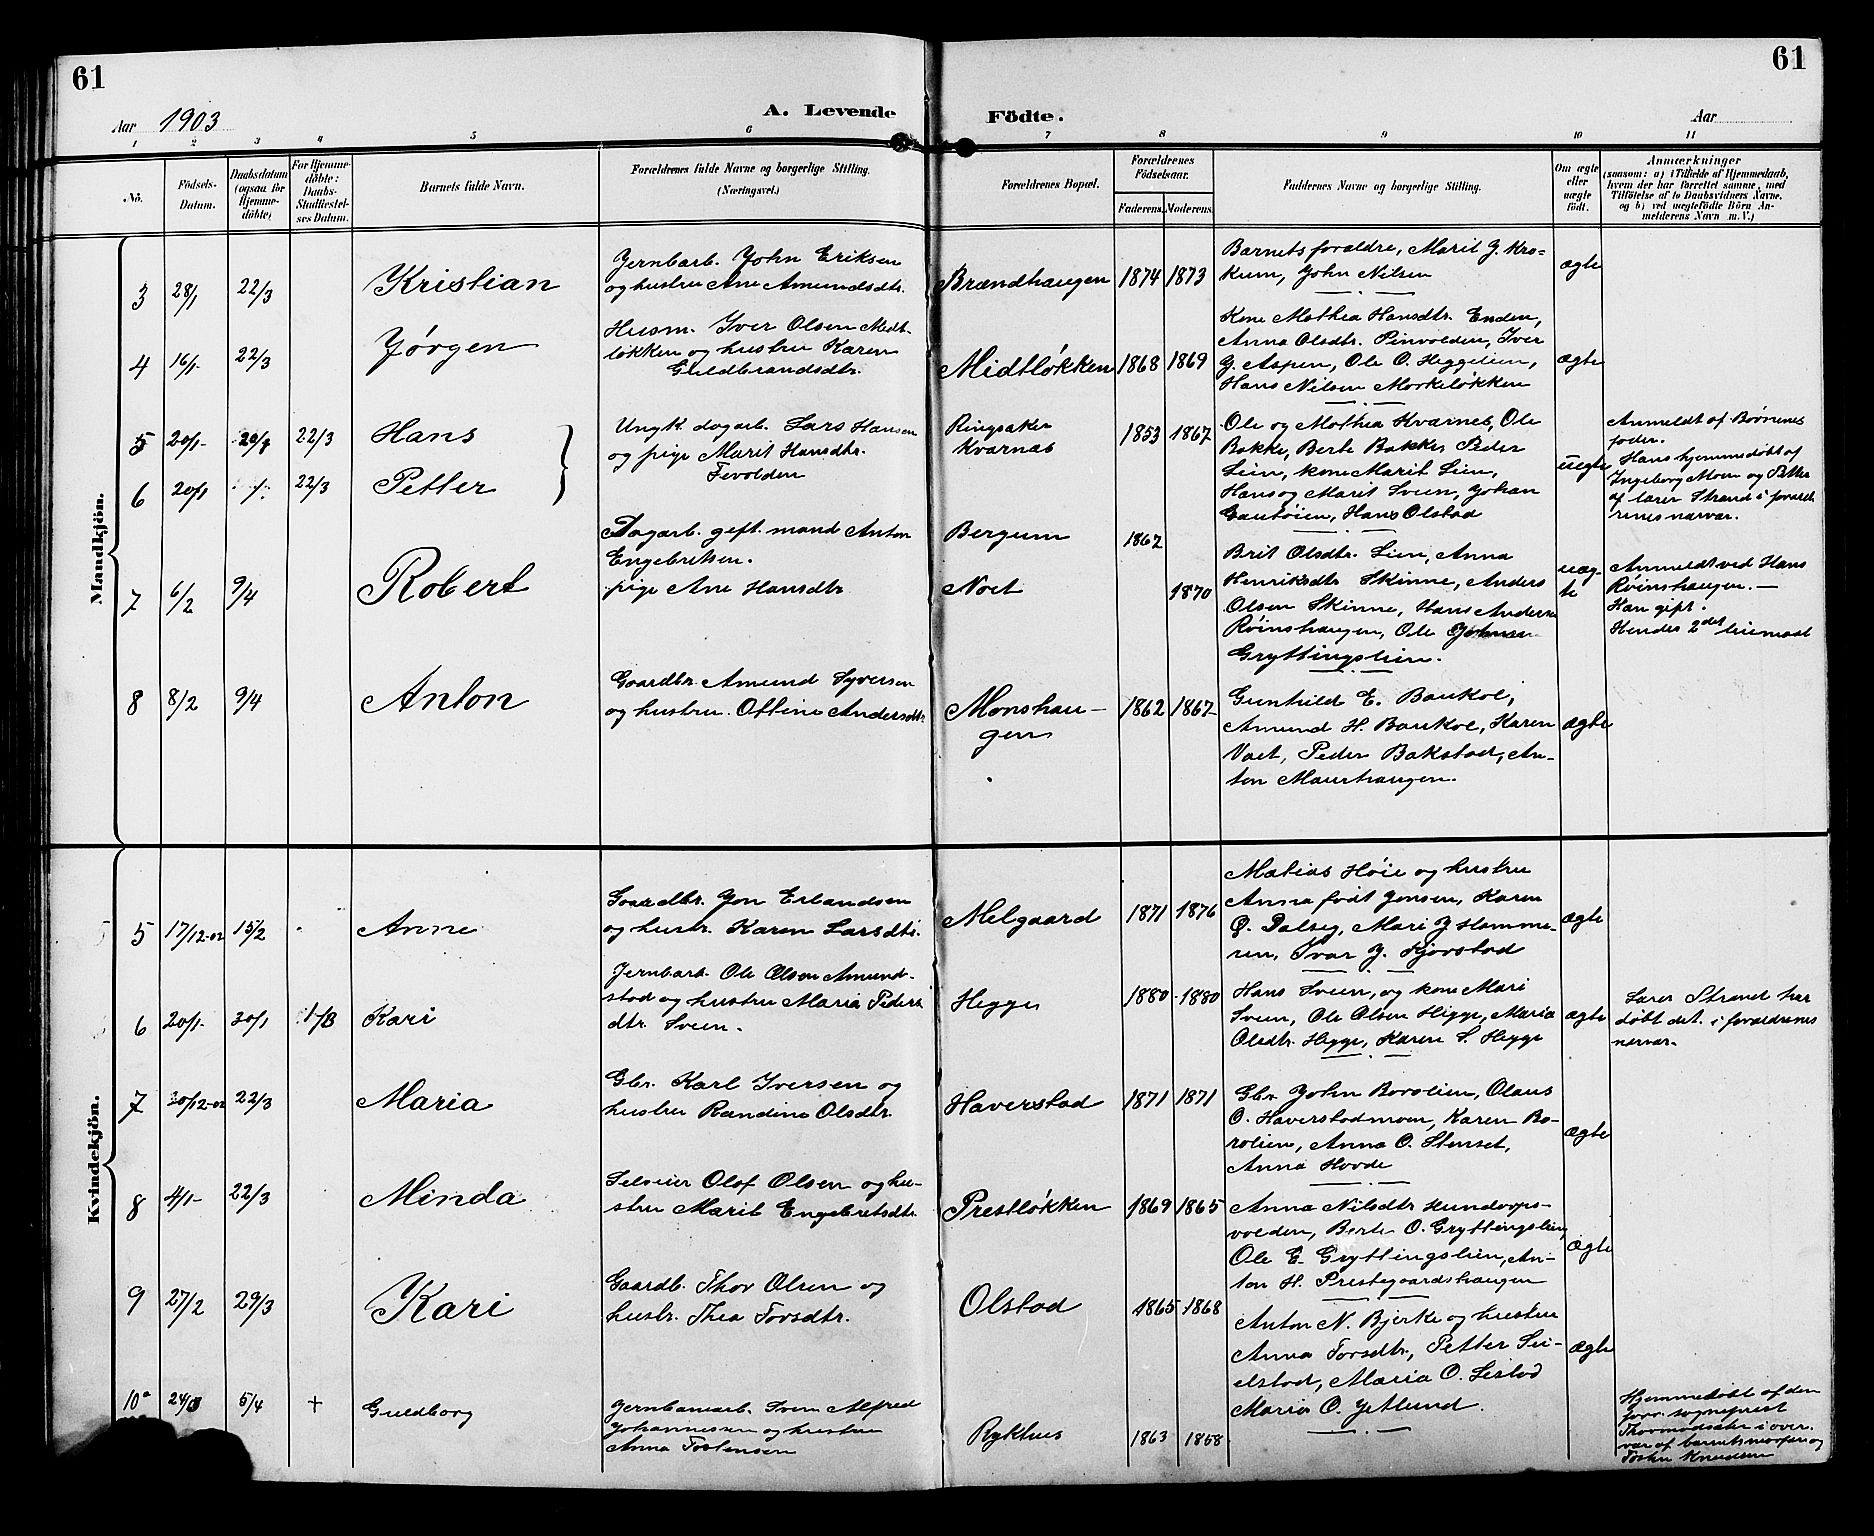 61
61
Aar 1903
A. Levende Födte.
Aar
1 2 3 4 5 6 7 8 9 10 11
No.
Födsels-Datum.
Daabsdatum (ogsaa for Hjemme-döbte)
For Hjemme-döbte: Daabs-Stadfæstelses Datum.
Barnets fulde Navn.
Forældrenes fulde Navne og borgerlige Stilling. (Næringsvei.)
Forældrenes Bopæl.
Forældrenes Födselsaar.
Faderens.
Moderens.
Faddernes Navne og borgerlige Stilling.
Om ægte eller uægte født.
Anmærkninger
(saasom: a) i Tilfælde af Hjemmedaab,
hvem der har forrettet samme, med
Tilföielse af to Daabsvidners Navne,
og b) ved uægtefödte Börn An-
melderens Navn m. V.)
Mandkjön.
3 28/1 22/3 Kristian
Jernbarb. John Eriksen
og hustru Ane Amundsdtr.
Brændhaugen 1874 1873
Barnets forældre, Marit J. Kro-
kum, John Nilsen
ægte
4 16/1- 22/3 Jørgen
Husm. Iver Olsen Midt-
løkken og hustru Karen
Guldbrandsdtr.
Midtløkken 1868 1869
Kone Mathea Hansdtr. Enden,
Anna Olsdtr. Pinvolden, Iver
G. Aspen, Ole O. Heggelien,
Hans Nilsen Morkeløkken
ægte
5 20/1- 22/3 Hans
6 20/1 22/3 Petter
Ungk. dagarb. Lars Hansen
og pige Marit Hansdtr.
Tevolden
Ringsaker
Kvarnes
1853 1867
Ole og Mathea Kvarnes, Ole
Bakke, Berte Bakke, Peder
Lien, kone Marit Lien,
Hans og Marit Sveen, Johan
Gautøien, Hans Olstad
uegte
Anmeldt af Børnenes
fader.
Hans hjemmedøbt af
Ingeborg Moen og Petter
af lærer Strand i foræld-
renes nærvær.
7 6/2 9/4 Robert
Dagarb. gift. mand Anton
Engebretsen.
pige Ane Hansdtr
Bergum
Noet
1862
1870
Brit Olsdtr. Lien, Anna
Henriksdtr Skinne, Anders
Olsen Skinne, Hans Anderse
Røinshaugen, Ole Johnsen
Gryttingslien.
uæg-
te
Anmeldt ved Hans
Røinshaugen. —
Han gift.
Hendes 2det leiemaal
8 8/2 9/4 Anton
Gaardbr. Amund Syversen
og hustru. Olline Andersdtr.
Monshau-
gen
1862 1867
Gunhild E. Baukol,
Amund H. Baukol, Karen
Voet, Peder Bakstad, An-
ton Maurhaugen.
ægte
Kvindekjön.
5 17/12-02 15/2 Anne
Gaardbr. Jon Erlandsen
og hustr. Karen Larsdtr.
Melgaard 1871 1876
Matias Høie og hustru
Anna født Jonsen, Karen
O. Dalseg, Mari J Homme-
ren, Ivar J. Kjorstad
ægte
6 20/1- 30/1 1/3 Kari
Jernbarb. Ole Olsen Amund-
stad og hustru Maria Peders
dtr. Sveen.
Hegge 1880 1880
Hans Sveen, og kone Mari
Sveen, Ole Olsen Hegge, Maria
Olsdtr. Hegge, Karen S. Hegge
ægte
Lærer Strand har
døbt det. i forældrenes
nærvær.
7 30/12-02 22/3 Maria
Gbr. Karl Iversen og
hustru Randine Olsdtr.
Haverstad 1871 1871
Gbr. John Borolien, Olaus
O. Haverstadmoen, Karen Bo-
rolien, Anna O. Stenset,
Anna Hovde
ægte
8 4/1- 22/3 Minda
Selveier Olof Olsen og hu-
stru Marit Engebretsdtr.
Prestløkken 1869 1865
Anna Nilsdtr Hundorps-
volden, Berte O. Gryttingslien,
Ole E. Gryttingslien, An-
ton H. Prestegaardshaugen
ægte
9 27/2 29/3 Kari
Gaardb. Thor Olsen og
hustr. Thea Torsdtr.
Olstad 1865 1868
Anton N. Bjerke og hustru
Anna Torsdtr, Petter Sei-
elstad, Maria O. Listad
Maria O. Jetlund.
ægte
10a 5/4 + Guldborg
Jernbanearb. Sven Alfred
Johannessen og hustru
Anna Torstensen
Rykhus 1863 1858
Hjemmedøbt af den
forr. sogneprest
Thormodsæter i over-
vær af barnets morfar og
Knudsen